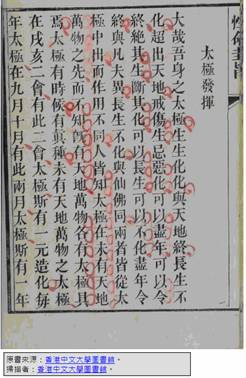 太極發揮
大哉吾身之太極生生化化與天地終長生不
化超出天地戒傷生忌惡化可以盡年可以令
終絕其生斷其化可以長生可以不化盡年令
終與凡夫異長生不化與仙佛同兩者皆從太
極中出而作用不同人皆知太極在未有天地
萬物之先而不知旣有天地萬物各有太極具
焉太極有時候有眞種未有天地萬物之太極
在戌亥二會有此二會太極斯有一元造化每
年太極在九月十月有此兩月太極斯有一年
原書來源：香港中文大學圖書館。
掃描者：香港中文大學圖書館。